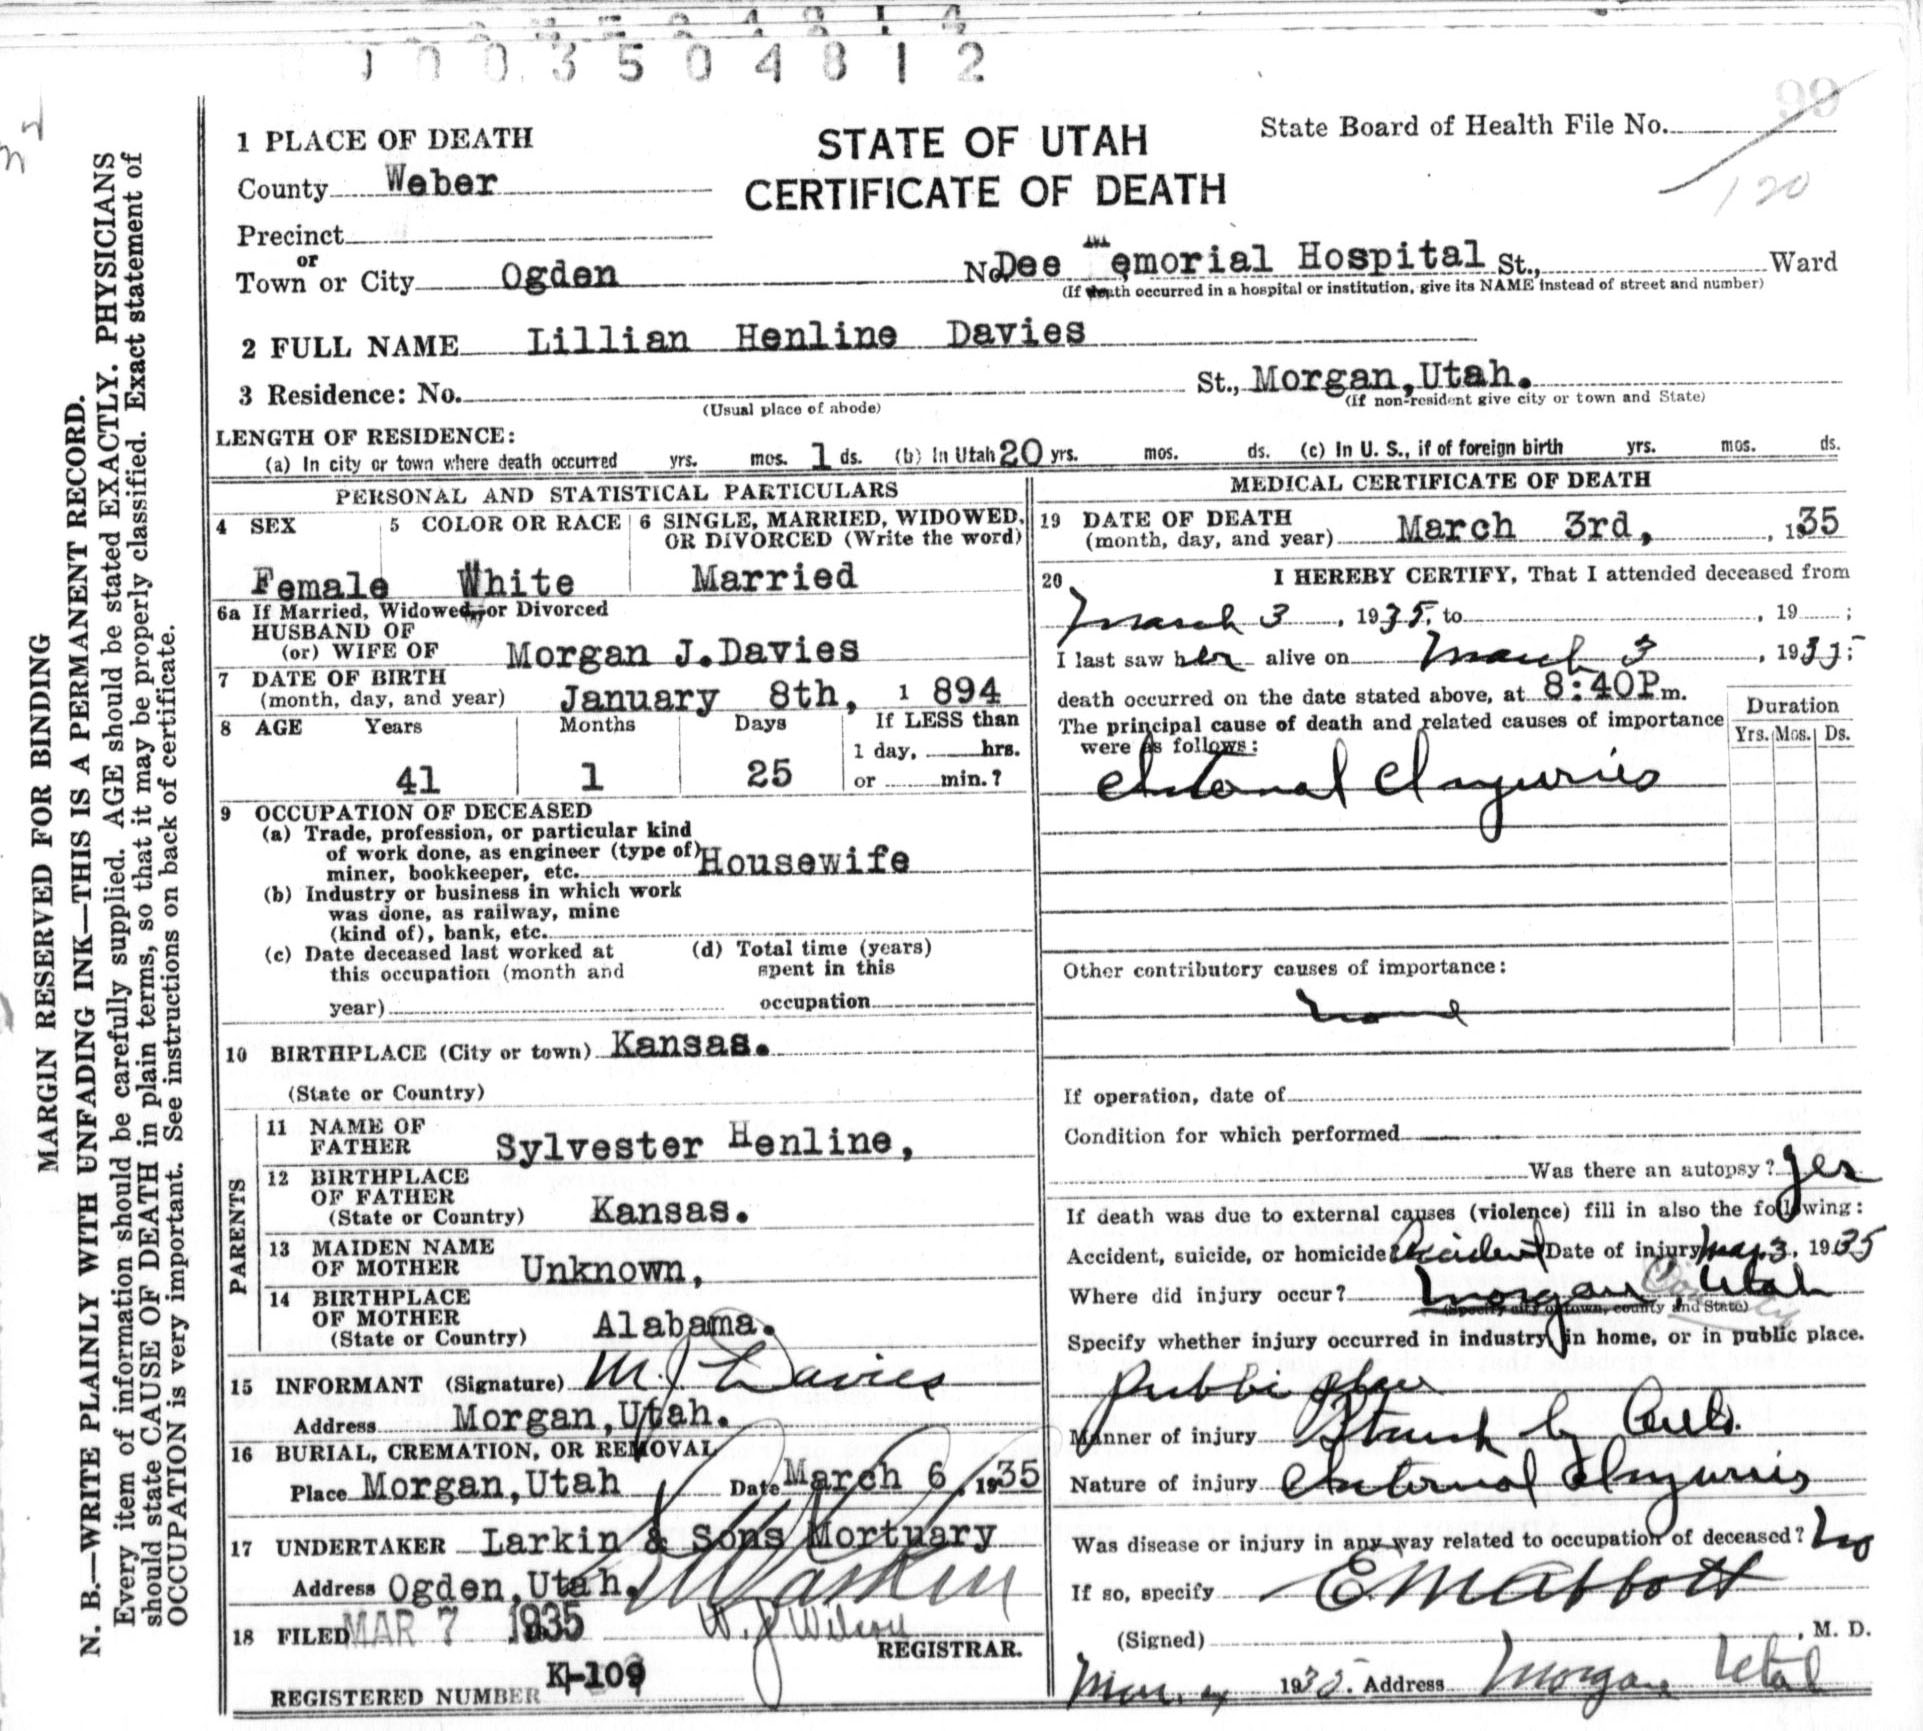 1003504812
99
120
STATE OF UTAH
CERTIFICATE OF DEATH
State Board of Health File No.
1 PLACE OF DEATH
County Weber
Precinct
or
Town or City Ogden No. Dee Memorial Hospital St., Ward
(If death occurred in a hospital or institution, give its NAME instead of street and number)
2 FULL NAME Lillian Henline Davies
3 Residence: No. St., Morgan,Utah.
(Usual place of abode) (If non-resident give city or town and State)
LENGTH OF RESIDENCE:
(a) In city or town where death occurred yrs. mos. 1 ds. (b) In Utah 20 yrs. mos. ds. (c) In U. S., if of foreign birth yrs. mos. ds.
PERSONAL AND STATISTICAL PARTICULARS
4 SEX 5 COLOR OR RACE 6 SINGLE, MARRIED, WIDOWED,
OR DIVORCED (Write the word)
Female White Married
6a If Married, Widowed, or Divorced
HUSBAND OF
(or) WIFE OF Morgan J.Davies
7 DATE OF BIRTH
(month, day, and year) January 8th, 1894
8 AGE Years Months Days If LESS than
1 day, hrs.
41 1 25 or min.?
9 OCCUPATION OF DECEASED
(a) Trade, profession, or particular kind
of work done, as engineer (type of)
miner, bookkeeper, etc. Housewife
(b) Industry or business in which work
was done, as railway, mine
(kind of), bank, etc.
(c) Date deceased last worked at (d) Total time (years)
this occupation (month and spent in this
year) occupation
10 BIRTHPLACE (City or town) Kansas.
(State or Country)
PARENTS
11 NAME OF
FATHER Sylvester Henline,
12 BIRTHPLACE
OF FATHER
(State or Country) Kansas.
13 MAIDEN NAME
OF MOTHER Unknown,
14 BIRTHPLACE
OF MOTHER
(State or Country) Alabama.
15 INFORMANT (Signature) M. J. Davies
Address Morgan,Utah.
16 BURIAL, CREMATION, OR REMOVAL
Place Morgan,Utah Date March 6, 1935
17 UNDERTAKER Larkin & Sons Mortuary
Address Ogden,Utah. Larkin
18 FILED MAR 7 1935 W. J Wilson
REGISTRAR.
K-109
REGISTERED NUMBER
MEDICAL CERTIFICATE OF DEATH
19 DATE OF DEATH
(month, day, and year) March 3rd, , 1935
20 I HEREBY CERTIFY, That I attended deceased from
March 3 , 1935, to , 19 ;
I last saw her alive on March 3 , 1935;
death occurred on the date stated above, at 8:40P m.
The principal cause of death and related causes of importance
were as follows:
Duration
Yrs. Mos. Ds.
Internal Injuries
Other contributory causes of importance:
none
If operation, date of
Condition for which performed
Was there an autopsy? yes
If death was due to external causes (violence) fill in also the following:
Accident, suicide, or homicide? Accident Date of injury Mar 3, 1935
Where did injury occur? Morgan County, Utah
(Specify city or town, county and State)
Specify whether injury occurred in industry, in home, or in public place.
public place
Manner of injury Struck by Auto.
Nature of injury Internal Injuries
Was disease or injury in any way related to occupation of deceased? No
If so, specify E M Abbott
(Signed) , M. D.
Mar. 1935. Address Morgan Utah
MARGIN RESERVED FOR BINDING
N. B.—WRITE PLAINLY WITH UNFADING INK—THIS IS A PERMANENT RECORD.
Every item of information should be carefully supplied. AGE should be stated EXACTLY. PHYSICIANS
should state CAUSE OF DEATH in plain terms, so that it may be properly classified. Exact statement of
OCCUPATION is very important. See instructions on back of certificate.